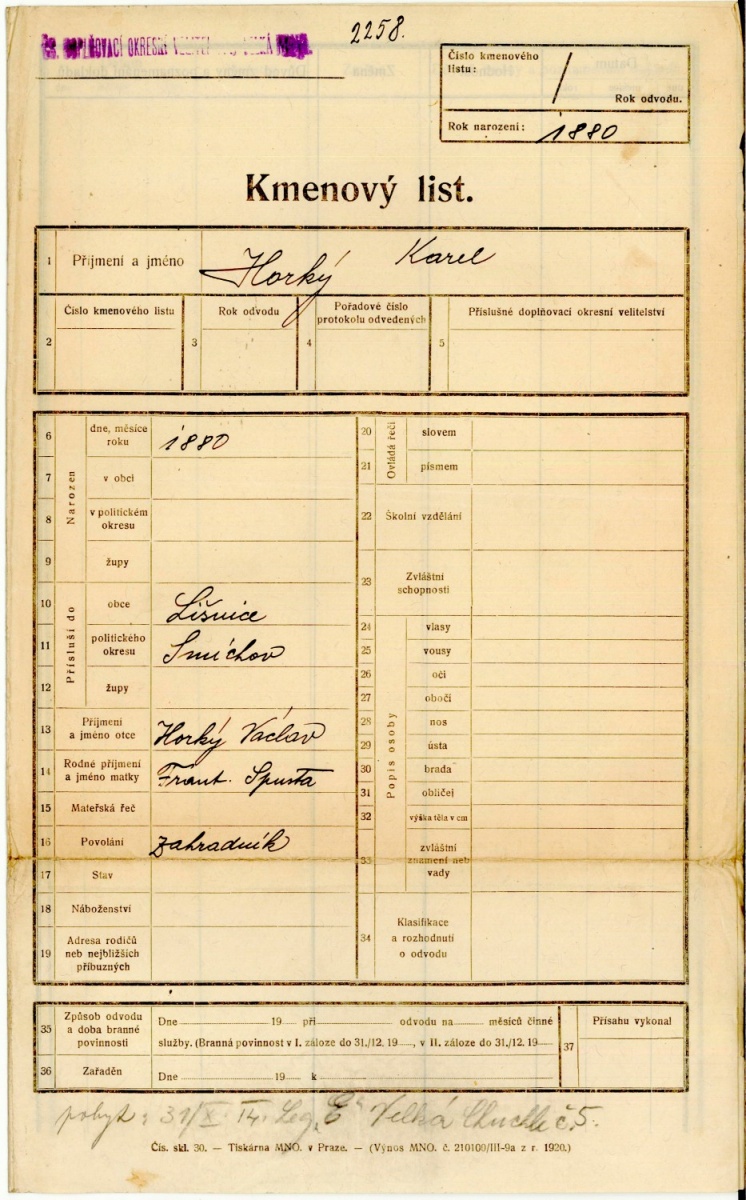 2258.
DOPLŇOVACÍ OKRESNÍ
Číslo kmenového
listu: /
Rok odvodu.
Rok narození: 1880
Kmenový list.
1 Příjmení a jméno Horký Karel
2 Číslo kmenového listu
3 Rok odvodu
4 Pořadové číslo
protokolu odvedených
5 Příslušné doplňovací okresní velitelství
Narozen
6 dne, měsíce
roku 1880
7 v obci
8 v politickém
okresu
9 župy
Přísluší do
10 obce Lišnice
11 politického
okresu Smíchov
12 župy
13 Příjmení
a jméno otce Horký Václav
14 Rodné příjmení
a jméno matky Frant. Spusta
15 Mateřská řeč
16 Povolání zahradník
17 Stav
18 Náboženství
19 Adresa rodičů
neb nejbližších
příbuzných
Ovládá řeči
20 slovem
21 písmem
22 Školní vzdělání
23 Zvláštní
schopnosti
Popis osoby
24 vlasy
25 vousy
26 oči
27 obočí
28 nos
29 ústa
30 brada
31 obličej
32 výška těla v cm
33 zvláštní
znamení neb
vady
34 Klasifikace
a rozhodnutí
o odvodu
35 Způsob odvodu
a doba branné
povinnosti
Dne 19 při odvodu na měsíců činné
služby. (Branná povinnost v I. záloze do 31./12. 19, v II. záloze do 31./12. 19
36 Zařaděn
Dne 19 k
37 Přísahu vykonal
pobyt: 31/X. 14. Leg. "E" Velká Chuchle č. 5.
Čís. skl. 30. — Tiskárna MNO. v Praze. — (Výnos MNO. č. 210100/III-9a z r. 1920.)